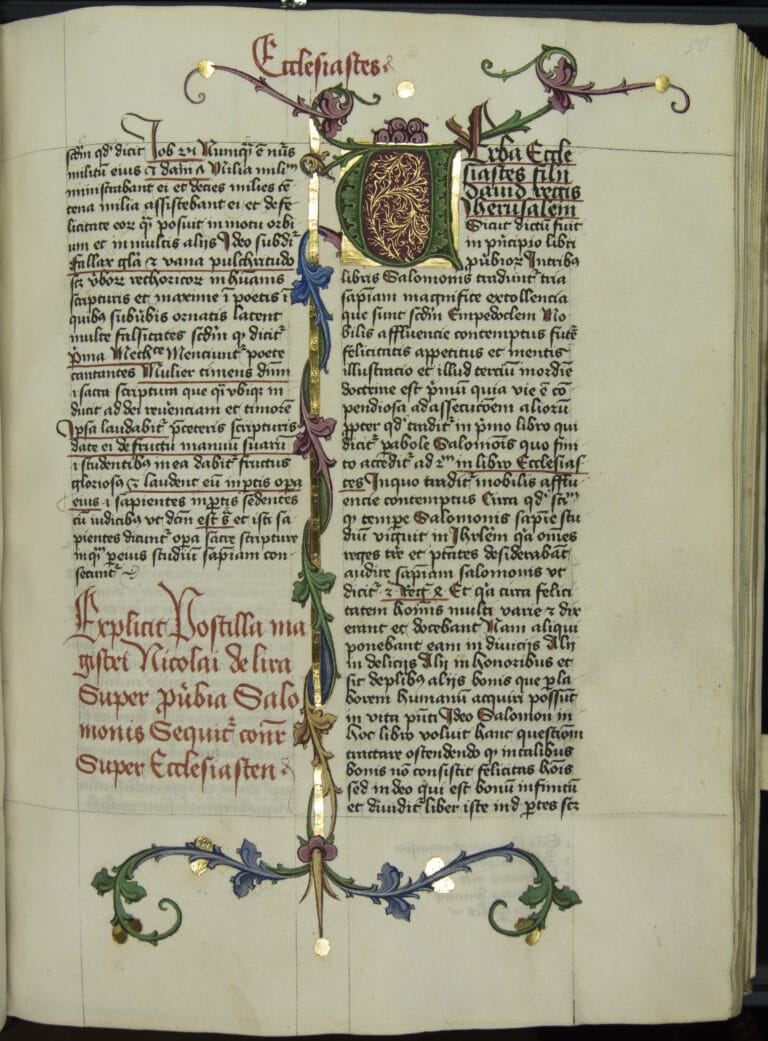 Ecclesiastes
scdm qd dicit Job xxv Numqᷓ ē nūs
militū eius ⁊ dañ 7 Milia miliū
ministrabant ei et decies milies cē
tena milia assistebant ei et de fe
licitate eorꝝ qͥ posuit in motu orbi
um et in multis alijs Ideo subdiť
fallax glā ⁊ vana pulchritudo
scꝫ v̾borꝝ rethoricorꝝ in hūanis
scripturis et maxime ī poetis ī
quibꝰ sub v̾bis ornatis latent
multe falsitates scdm qͥ diciť
Mentiunť poete
cantantes Mulier timens dnm
ī sacra scriptura que qͣi vbiqꝫ in
ducit ad dei reu̾enciam et timorē
Ipsa laudabiť p̄ ceteris scripturis
date ei de fructu manuū suarū
ī studentibꝰ in ea dabiť fructus
gloriosꝰ ⁊ laudent eū in ptis opa
eius ī sapientes in portis sedentes
cū iudicibꝰ vt dcm est sͣ et isti sa
pientes dicunť opa sacre scripture
inqͣꝫ per eius studiū sapiam con
secunť
Explicit Postilla ma
gistri Nicolai de lira
Super ꝓu̾bia Salo
monis Sequiť cōnr
Super Ecclesiasten
Verba Eccle
siastes filij
dauid regis
Jherusalem
Sicut dictū fuit
in p̄ncipio libri
ꝓu̾biorꝫ In tribꝰ
libris Salomonis tradunť tria
sapiam magnifice extollencia
que sunt scdm Empedoclem No
bilis affluencie contemptus futē
felicitatis appetitus et mentis
illustracio et illud terciū in ordīe
doctrine est p̄mū quia vie ē cō
pendiosa ad assecucōem aliorū
ꝓpter qd tradiť in p̄mo libro qui
diciť pabole Salomōis quo fini
to accediť ad 2m in libro Ecclesias
tes In quo tradiť mobilis afflu
encie contemptus Circa qd scᵐ
qͥ tempe Salomonis sapie stu
diū viguit in Jhrlem qͣ om̄es
reges tre et ptātes desiderabāt
audire sapiam salomonis vt
diciť 2 Reg 8 Et qͣ circa felici
tatem homīs multi varie ⁊ dix
erant et docebant Nam aliqui
ponebant eam in diuicijs Alij
in delicijs Alij in honoribus et
sic de plibꝰ alijs bonis que p la
borem humanū acquiri possūt
in vita p̄nti Ideo Salomon in
hoc libro voluit hanc questiōm
tractare ostendendo qͥ in talibus
bonis nō consistit felicitas hoīs
sed in deo qui est bonū infinitū
et diuidiť liber iste in d̵ ꝑtes scꝫ